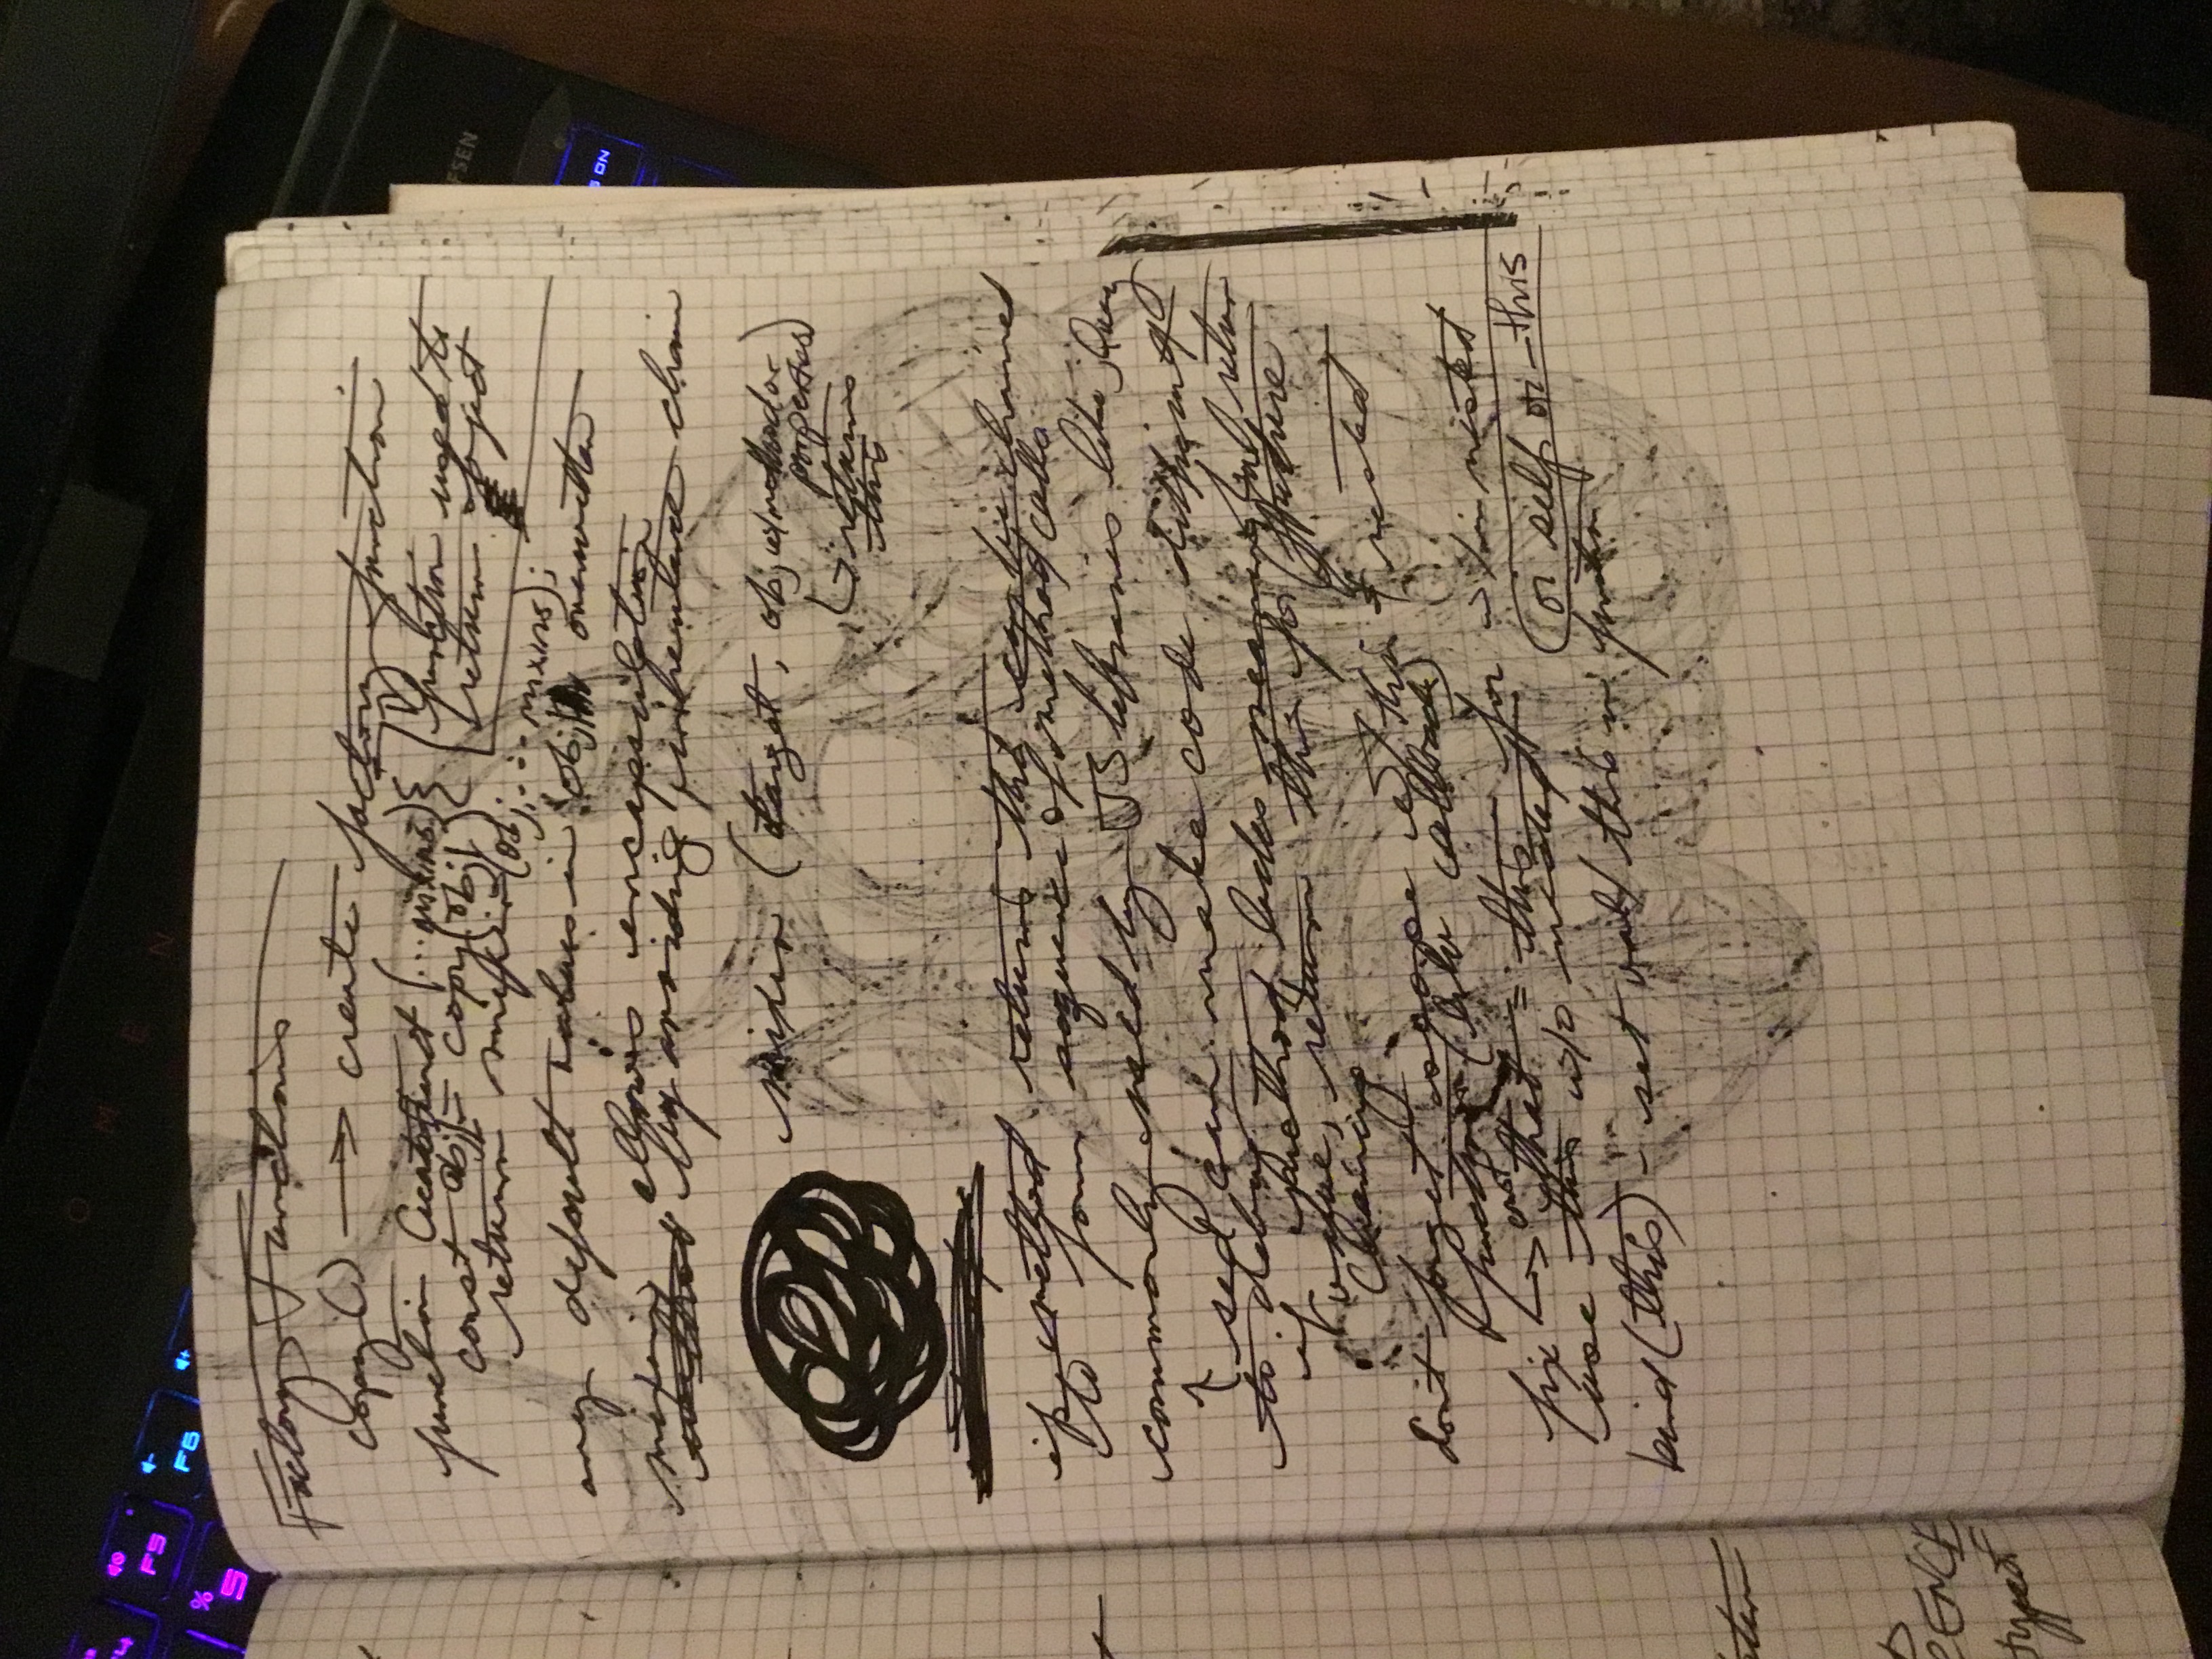 F5
F6
%
5
OMEN
FSEN
ON
Factory Functions
copy() → create factory function
function CreateFunct (...mixins) {
const obj = copy(obj1)
return mixin(obj, ... mixins);
function used to
return object
any default values in obj overwritten
mixin allows encapsulation
by avoiding inheritance chain
mixin (target, obj w/ method or
properties)
↳ returns
this
if method returns this can be chained
to form sequence of method calls
commonly used by JS libraries like jQuery
↑ sed can make code difficult
to debug
if method lacks meaningful return
value, return this for future
chaining
don't forget scope w/ this & nested
functions (like callbacks)
fix → const that = this for w/in nested
use this w/o nested
or self or _this
bind(this) - set val/ this in function
ENCE